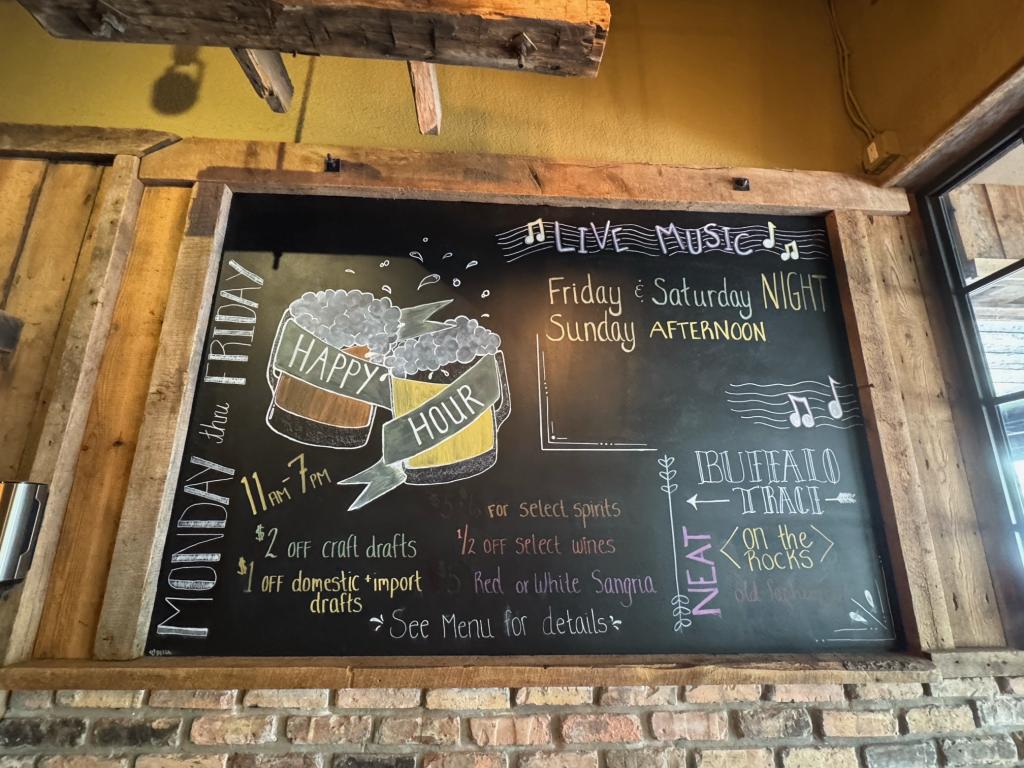 MONDAY thru FRIDAY
HAPPY
HOUR
11AM-7PM
$2 OFF craft drafts
$1 OFF domestic + import
drafts
FOR select spirits
1/2 OFF select wines
Red or White Sangria
See Menu for details
LIVE MUSIC
Friday & Saturday NIGHT
Sunday AFTERNOON
BUFFALO
TRACE
NEAT
on the
ROCKS
old fashioned